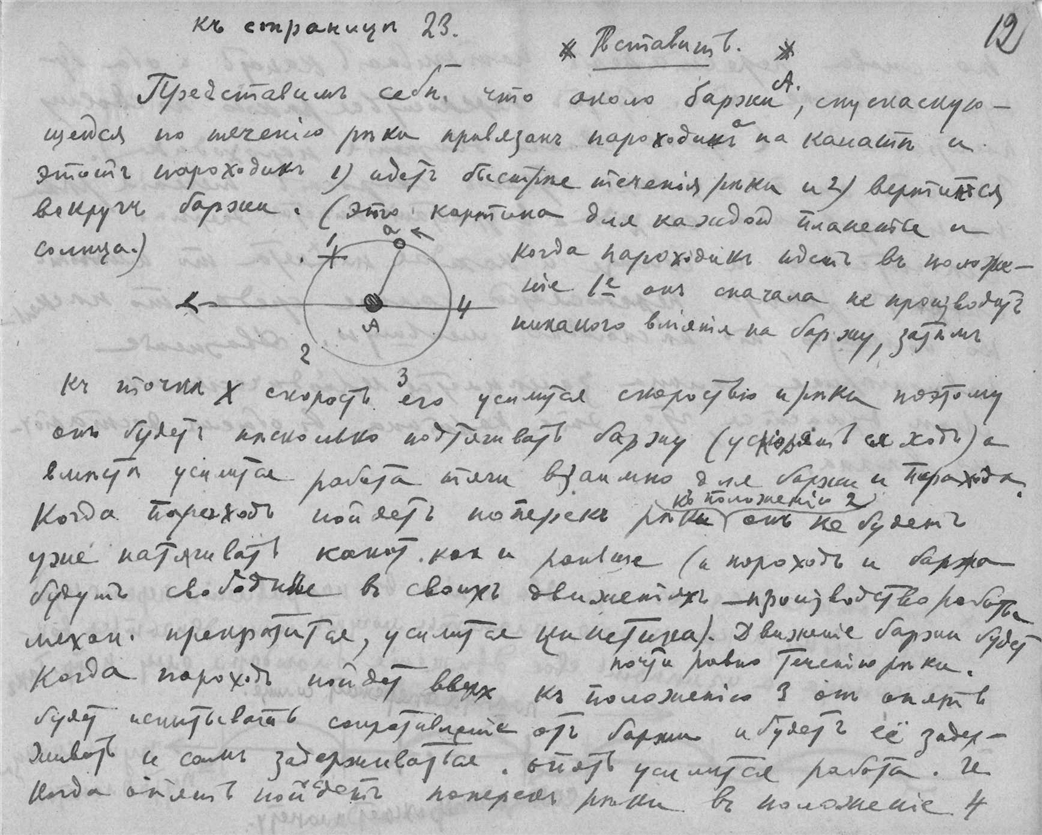 къ страницѣ 23.
12
* Вставить. *
Представимъ себѣ, что около баржи А, спускающу-
щейся по теченію рѣки привязанъ пароходикъ а на канатѣ и
этотъ пароходикъ 1) идетъ быстрѣе теченія рѣки и 2) вертится
вокругъ баржи. (это картина для каждой планеты и
солнца.)
когда пароходикъ идетъ въ положе-
ніе 1е онъ сначала не производитъ
никакого вліянія на баржу, затѣмъ
а
1
А
4
2
3
къ точкѣ X скорость его усилится скоростью рѣки поэтому
онъ будетъ нѣсколько подтягивать баржу (ускорять ея ходъ) а
вмѣстѣ усилится работа тяги взаимно для баржи и парохода.
Когда пароходъ пойдетъ поперекъ рѣки къ положенію 2 онъ не будетъ
уже натягивать канат. как и раньше (и пароходъ и баржа
будутъ свободнѣе въ своихъ движеніяхъ – производство работы
механ. прекратится, усилится кинетика). Движеніе баржи будетъ
почти равно теченію рѣки.
Когда пароходъ пойдет вверх къ положенію 3 он опять
будет испытывать сопротивленіе отъ баржи и будетъ её задер-
живать и самъ задерживаться. опять усилится работа. И
когда опять пойдетъ поперекъ рѣки въ положеніе 4